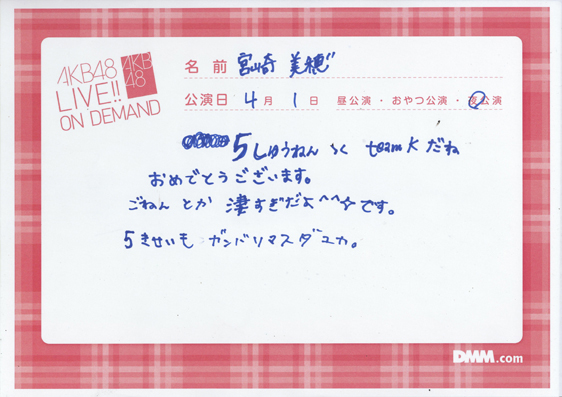 AKB48
LIVE!!
ON DEMAND
AKB
48
名前 宮崎 美穂
公演日 4月 1日 昼公演・おやつ公演・夜公演
5しゅうねん team K だね
おめでとうございます。
ごねん とか 凄すぎだよ^^☆です。
5きせいも ガンバリマスダユカ。
DMM.com